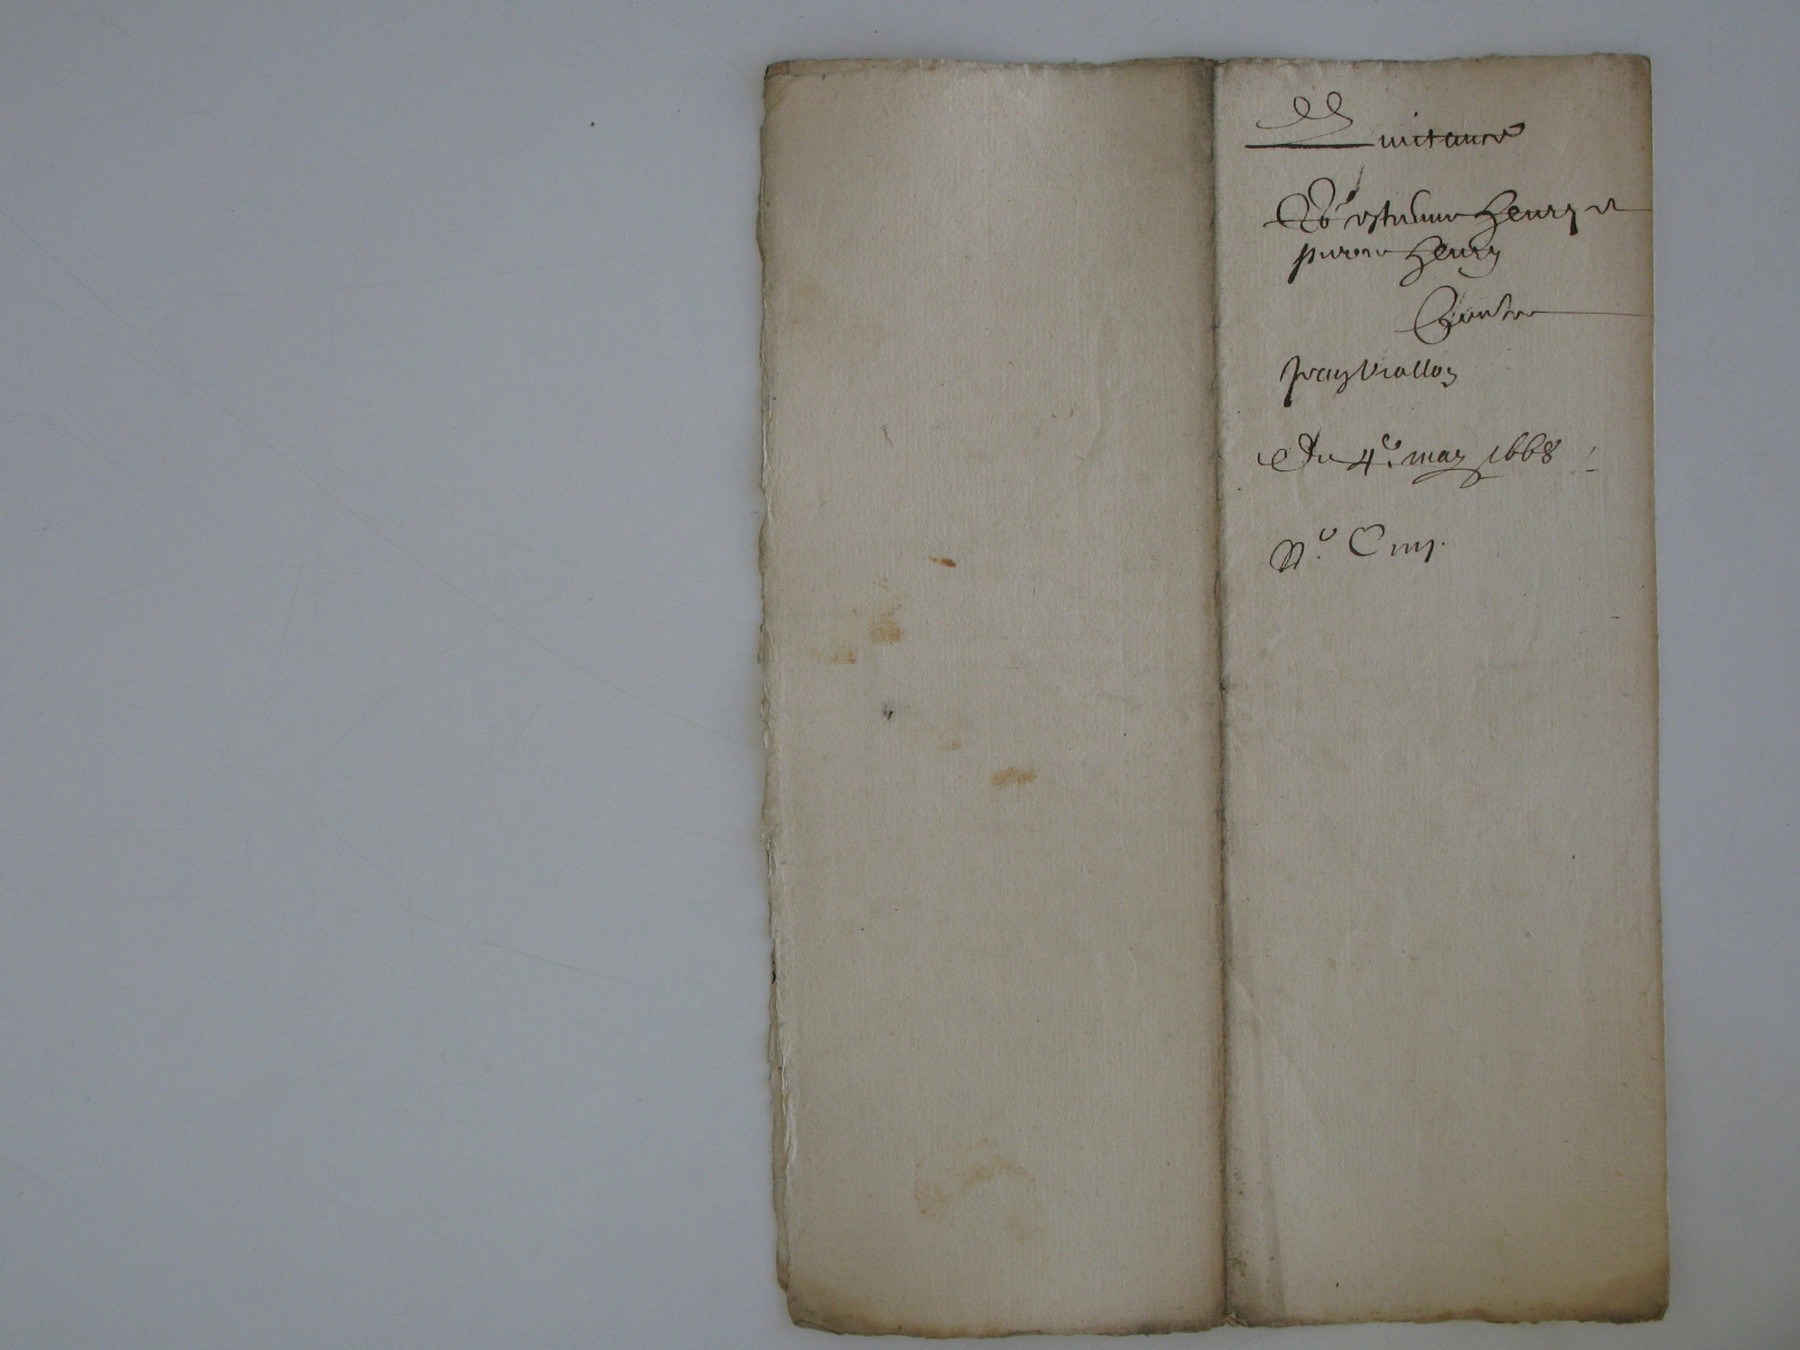 Quictance
Po.r estienne Henry et
pierre Henry
Contre
Jean Viallon
Du 4.e may 1668
N.o Ciiij.